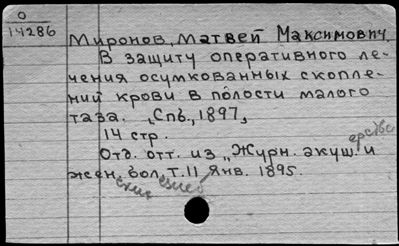 0
14286
Миронов, Матвей Максимович
В защиту оперативного ле-
чения осумкованных скопле-
ний крови в полости малого
таза. [Спб, 1897]
14 стр.
Отд. отт. из „Журн. акуш. и
жен. бол., т. 11, Янв. 1895.